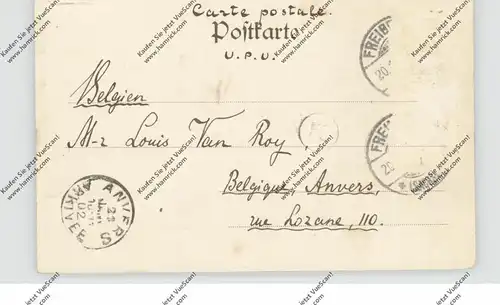 Carte postale.
Postkarte
U.P.U.
Belgien
M-r Louis Van Roy
Belgique, Anvers,
rue Lozane, 110.
FREIB
20
FREIB
ANVERS
ARRIVEE
Kaufen Sie jetzt VueScan!
www.hamrick.com